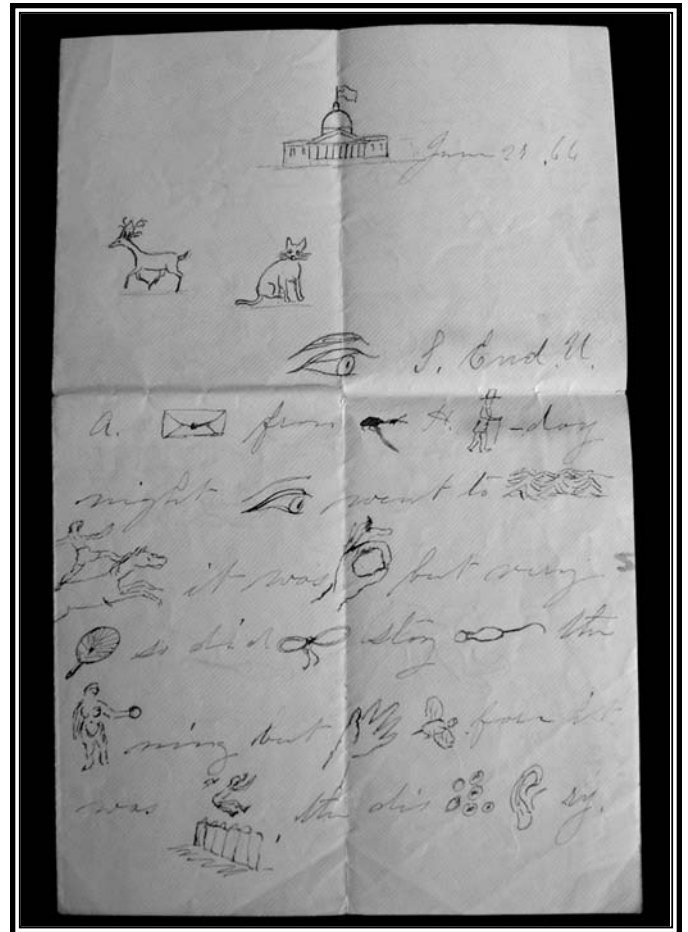 June .66
S. End. U.
A. from H. -day
night went to
it was but very
so did stay the
ning but fore it
was . the dis ry.